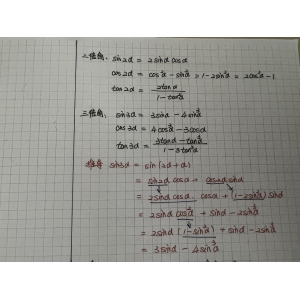 二倍角: sin2α = 2sinα cosα
cos2α = cos²α - sin²α = 1-2sin²α = 2cos²α-1
tan2α = 2tanα / 1-tan²α
三倍角: sin3α = 3sinα - 4sin³α
cos3α = 4cos³α - 3cosα
tan3α = 3tanα - tan³α / 1-3tan²α
推导 sin3α = sin(2α+α)
= sin2α cosα + cos2α sinα
= 2sinα cosα · cosα + (1-2sin²α) sinα
= 2sinα cos²α + sinα - 2sin³α
= 2sinα (1-sin²α) + sinα - 2sin³α
= 3sinα - 4sin³α